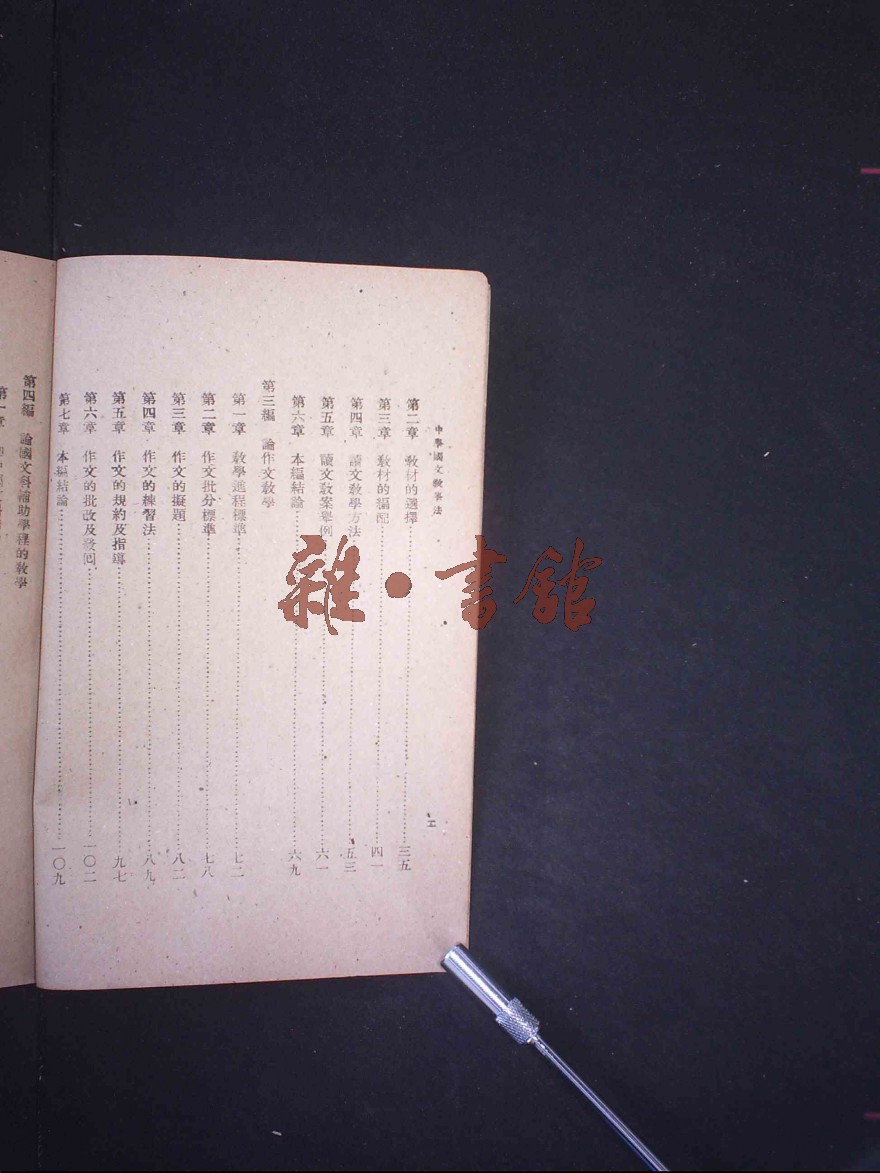 中學國文教學法
第二章 教材的選擇……三五
第三章 教材的編配……四一
第四章 讀文教學方法……五三
第五章 讀文教案舉例……六一
第六章 本編結論……六九
第三編 論作文教學
第一章 教學進程標準……七二
第二章 作文批分標準……七八
第三章 作文的擬題……八二
第四章 作文的練習法……八九
第五章 作文的規約及指導……九七
第六章 作文的批改及發回……一〇二
第七章 本編結論……一〇九
第四編 論國文科補助學程的教學
第一章
雜·書館